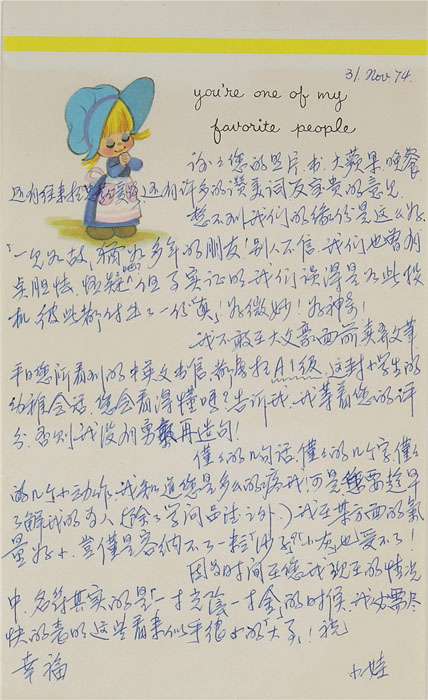 31. Nov 74.
you're one of my
favorite people
谢谢您的照片,书,大苹果,晚餐
还有 还有许多的赞美词及宝贵的意见
想不到我们的缘份是这么好.
「一见如故, 如多年的朋友!别人不信,我们也曾有
点胆怯,怀疑 但事实证明我们谈得是如此投
机,彼此都付出了一份「真」!多微妙!多神奇!
我不敢在大文豪面前卖弄文革
平日您所看到的中英文书信,都属于A1级,这封小学生的
幼稚会话,您会看得懂吗?告诉我,我等着您的评
分,否则我没有勇气再造句!
仅仅的几句话,仅仅的几个字,仅仅
的几个小动作,我知道您是多么的疼我!可是您要趁早
了解我的为人(除了学问品德之外)我在某方面的气
量好小,岂仅是容纳不了一粒「沙子」「小灰」也受不了!
因为时间在您我现在的情况
中,名符其实的是「一寸光阴一寸金」的时候,我必需尽
快的表明这些看来似乎很小的大事!祝
幸福
小娃